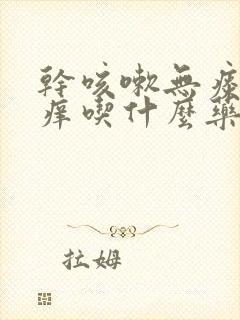 幹咳嗽無痰
痒喫什麼藥
拉姆